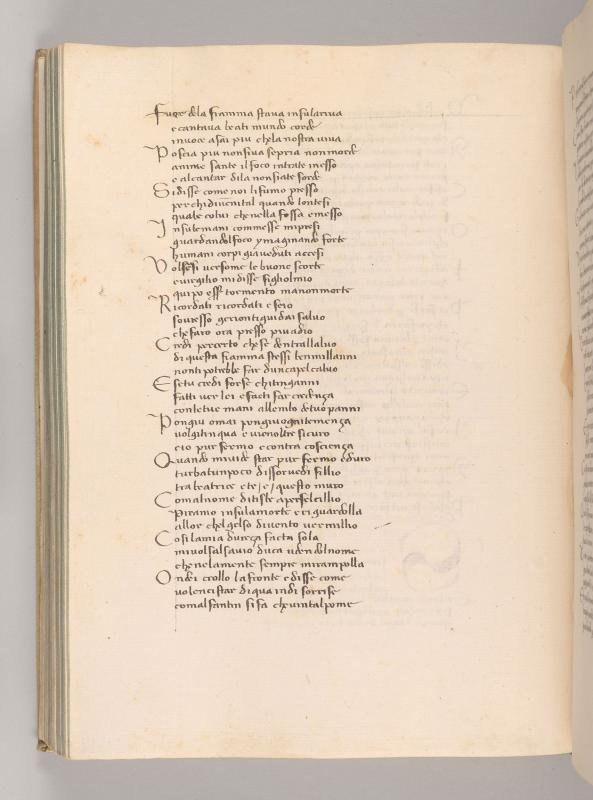 Fuor dela fiamma stava insulariva
e cantava beati mundo corde
invoce asai piu chela nostra viva
Poscia piu nonsiva sepria non morde
anime sante il foco intrate inesso
e alcantar dila nonsiate sorde
Si disse come noi li fumo presso
per chi divēnital quando lontesi
quale colui che nella fossa e messo
Insulemani commesse mi presi
guardandol foco ymaginando forte
humani corpi gia veduti accesi
Volsesi verso me le buone scorte
e virgilio mi disse figliolmio
qui po esser tormento ma non morte
Ricordati ricordati e se io
sovresso gerion ti guidai salvo
che faro ora presso piu adio
Credi percerto che se dentrallalvo
di questa fiamma stessi ben mill anni
non ti potrebbe far duncapel calvo
E setu credi forse chitinganni
fatti ver lei e fatti far credença
con le tue mani allembo de tuo panni
Pon giu omai pon giu ogni temença
volgitin qua e vieno ltre sicuro
e io pur fermo e contra coscienca
Quando mi vide star pur fermo e duro
turbatunpoco disse or vedi fillio
tra beatrice e te / e / questo muro
Comalnome di tisbe aperse l cillio
Piramo insula morte e riguardolla
allor chel gelso divento vermillio
Cosi lamia dureça facta solla
mi volsal savio duca udendol nome
che nelamente sempre mi rampolla
Ondei crollo la fronte e disse come
volenci star di qua indi sorrise
comal fantin si fa che vintal pome